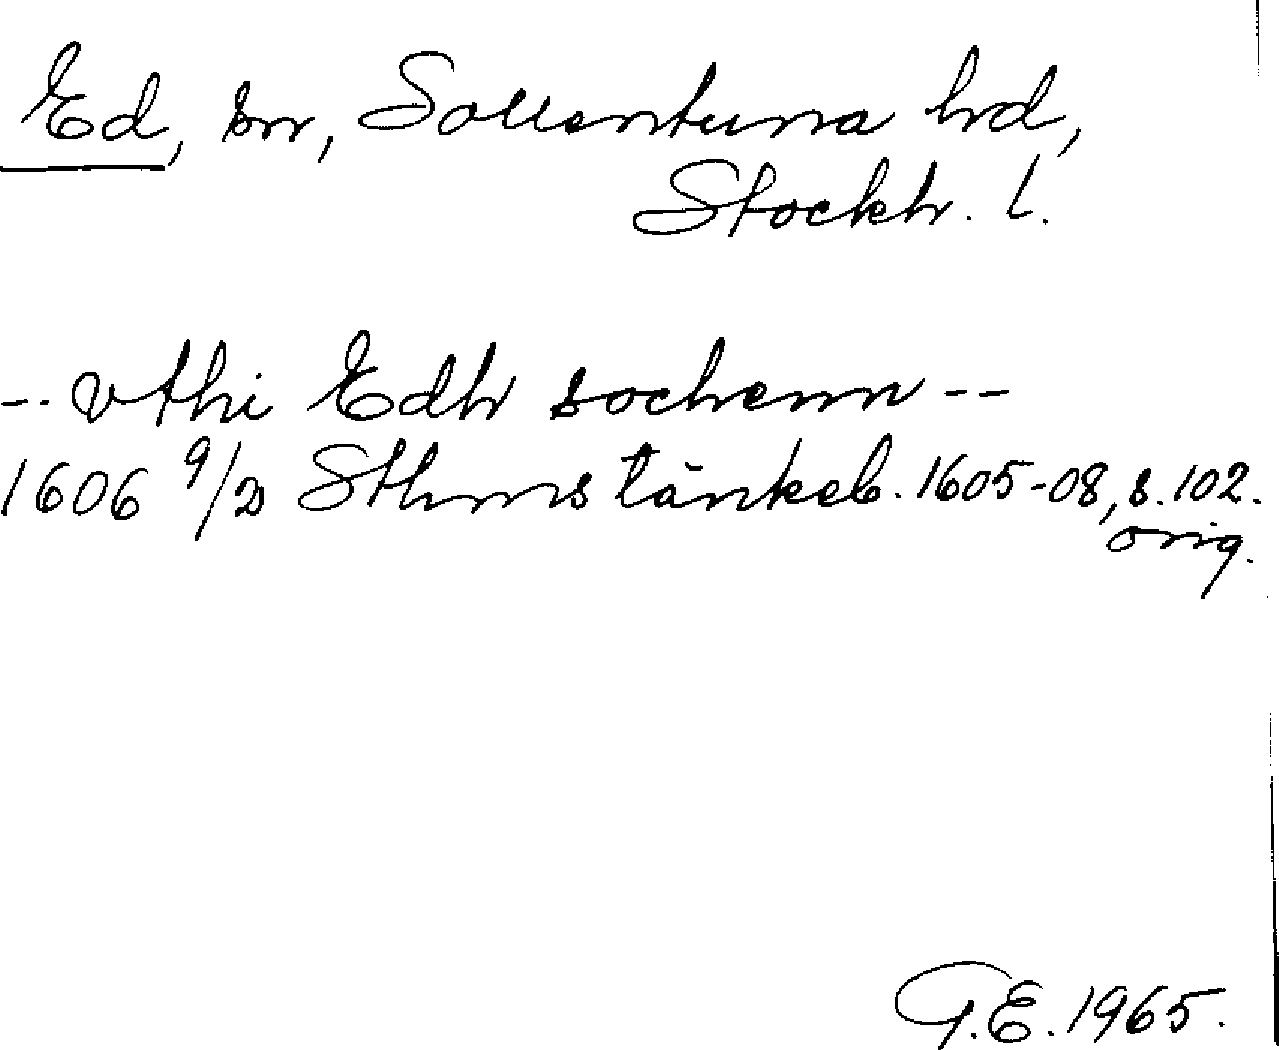 Ed, sn, Sollentuna hd,
Stockh. l.
-- vthi Edh sochenn --
1606 9/2 Sthms tänkeb. 1605-08, s. 102.
orig.
G.E. 1965.